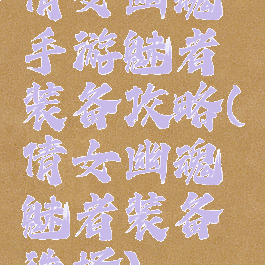 倩女幽魂
手游魅者
装备攻略(
倩女幽魂
魅者装备